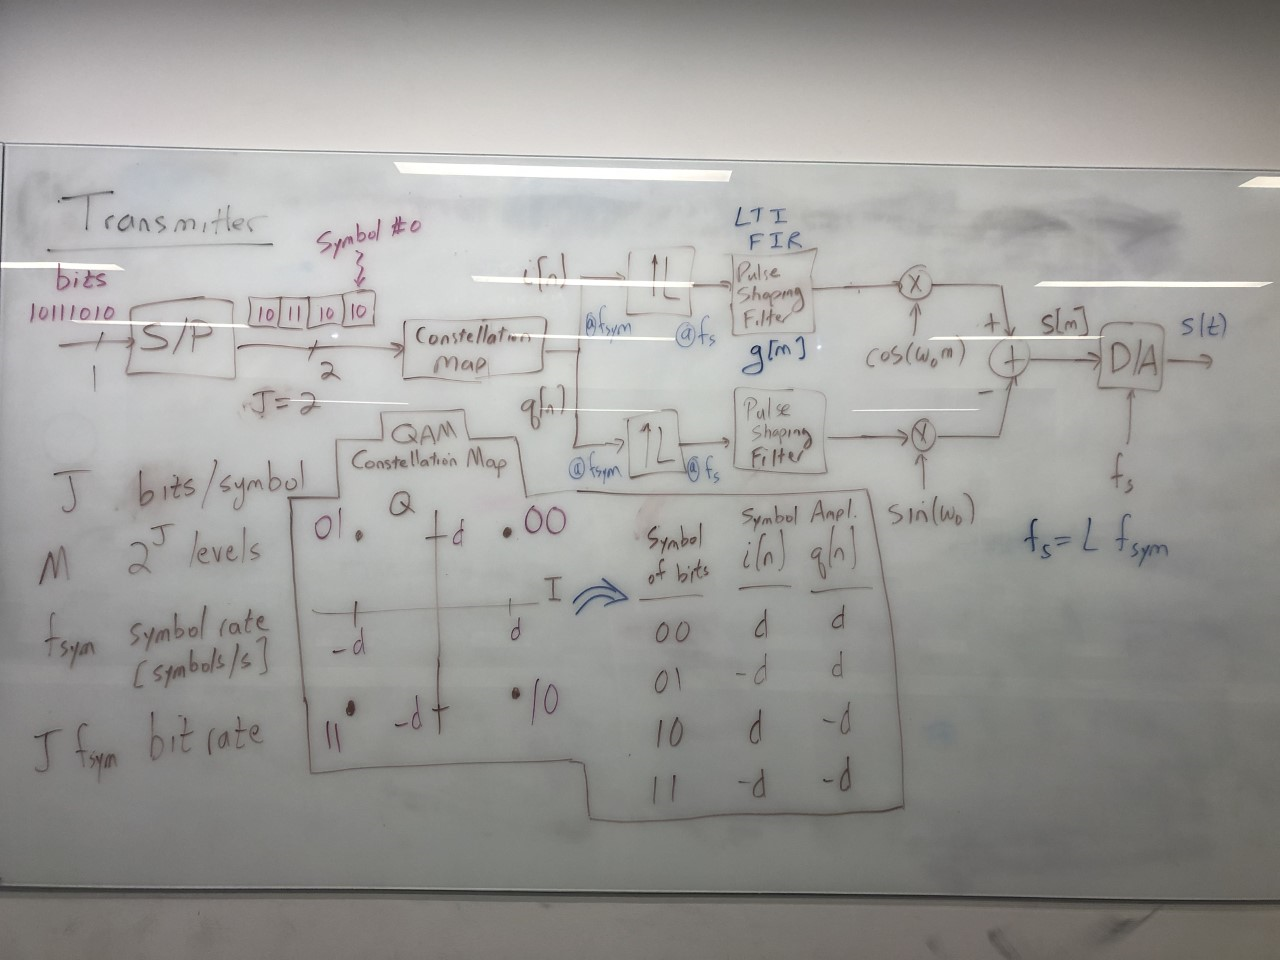 Transmitter
bits
10111010
1
S/P
Symbol #0
10 11 10 10
2
J = 2
Constellation
Map
i[n]
q[n]
@fsym
↑L
@fs
LTI
FIR
Pulse
Shaping
Filter
g[m]
@fsym
↑L
@fs
Pulse
Shaping
Filter
X
cos(ω₀m)
X
sin(ω₀)
+
+
-
s[m]
D/A
s(t)
fs
fs = L fsym
J bits/symbol
M 2^J levels
fsym symbol rate
[symbols/s]
J fsym bit rate
QAM
Constellation Map
Q
01
d
00
I
-d
d
11
-d
10
Symbol Ampl.
Symbol
of bits
i[n] q[n]
00 d d
01 -d d
10 d -d
11 -d -d